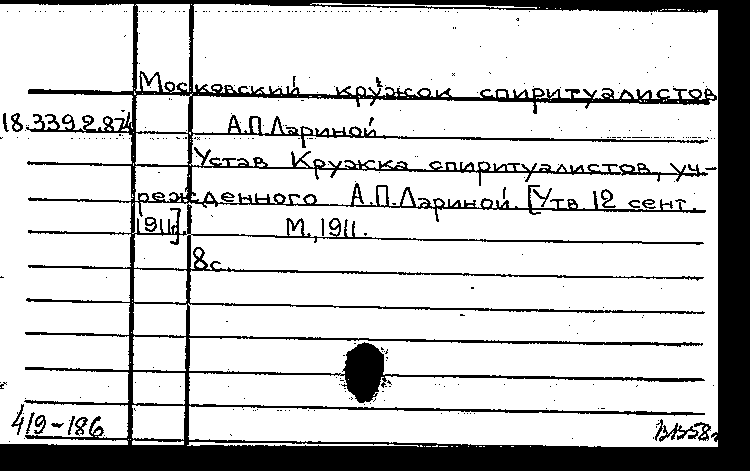 Московский кружок спиритуалистов
18.339.2.874 А.П.Лариной.
Устав Кружка спиритуалистов, уч-
режденного А.П.Лариной. [Утв. 12 сент.
1911г]. М., 1911.
8с.
419-186